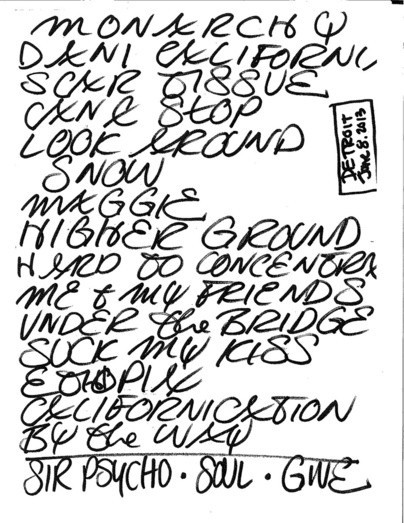 MONARCHY
DANI CALIFORNI
SCAR TISSUE
CANT STOP
LOOK AROUND
SNOW
DETROIT
JUNE 8. 2013
MAGGIE
HIGHER GROUND
HARD TO CONCENTRA
ME + MY FRIENDS
UNDER the BRIDGE
SUCK MY KISS
ETHIOPIA
CALIFORNICATION
BY the WAY
SIR PSYCHO · SOUL · GIVE